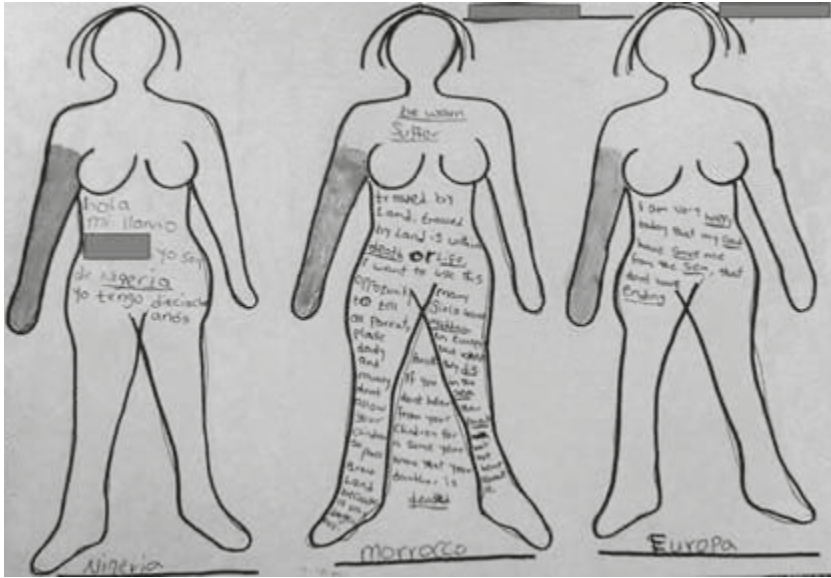 hola
mi llamo
yo soy
de Nigeria
yo tengo dieciocho
anós
Nigeria
be warn
Suffer
traved by
Land, traved
by Land is within
death or Life
i want to use this
opportunity
to tell
all parent,
please
dady
and
mumy
dont
allow
your
children
to pass
Land
because
many
girls have
in Europe
in the
sea
If you
dont hear
from your
children for
is some year
know that your
daughter is
deaded
Morrocco
I am very happy
today that my God
have save me
from the sea, that
dont have
Ending
Europa